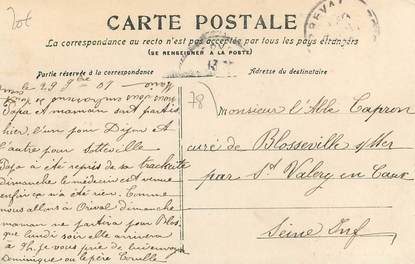 CARTE POSTALE
La correspondance au recto n'est pas acceptée par tous les pays étrangers
(SE RENSEIGNER A LA POSTE)
Partie réservée à la correspondance
Adresse du destinataire
le 29 9bre 07
Papa et maman sont partis
hier, l'un pour Dijon et
l'autre pour Sotteville
Papa a été repris de sa trachéite
dimanche le médecin est venu
enfin ça n'a été rien. Comme
nous allons à Orival dimanche
maman ne partira pour Blos.
que lundi soir elle arrivera
à 7h. je vous prie de
Dominique ou le père
78
Monsieur l'Abbé Capron
curé de Blosseville s/Mer
par St Valery en Caux
Seine Inf